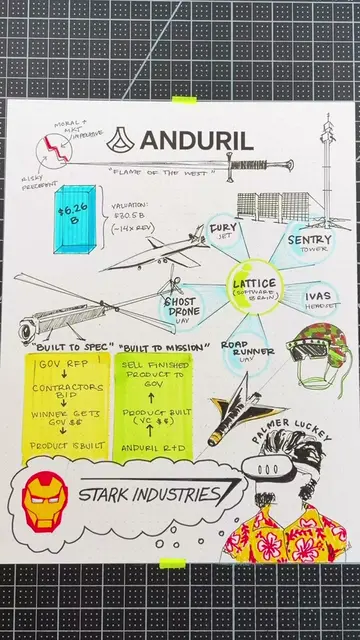 MORAL +
MKT
IMPERATIVE
RISKY
PRECEDENT
ANDURIL
"FLAME OF THE WEST"
$6.26
B
VALUATION:
$30.5B
(~14X REV)
FURY
JET
SENTRY
TOWER
LATTICE
(SOFTWARE
BRAIN)
GHOST
DRONE
UAV
IVAS
HEADSET
ROAD
RUNNER
UAV
"BUILT TO SPEC"
GOV RFP
CONTRACTORS
BID
WINNER GETS
GOV $$
PRODUCT IS BUILT
"BUILT TO MISSION"
SELL FINISHED
PRODUCT TO
GOV
PRODUCT BUILT
(VC $$)
ANDURIL R+D
PALMER LUCKEY
STARK INDUSTRIES